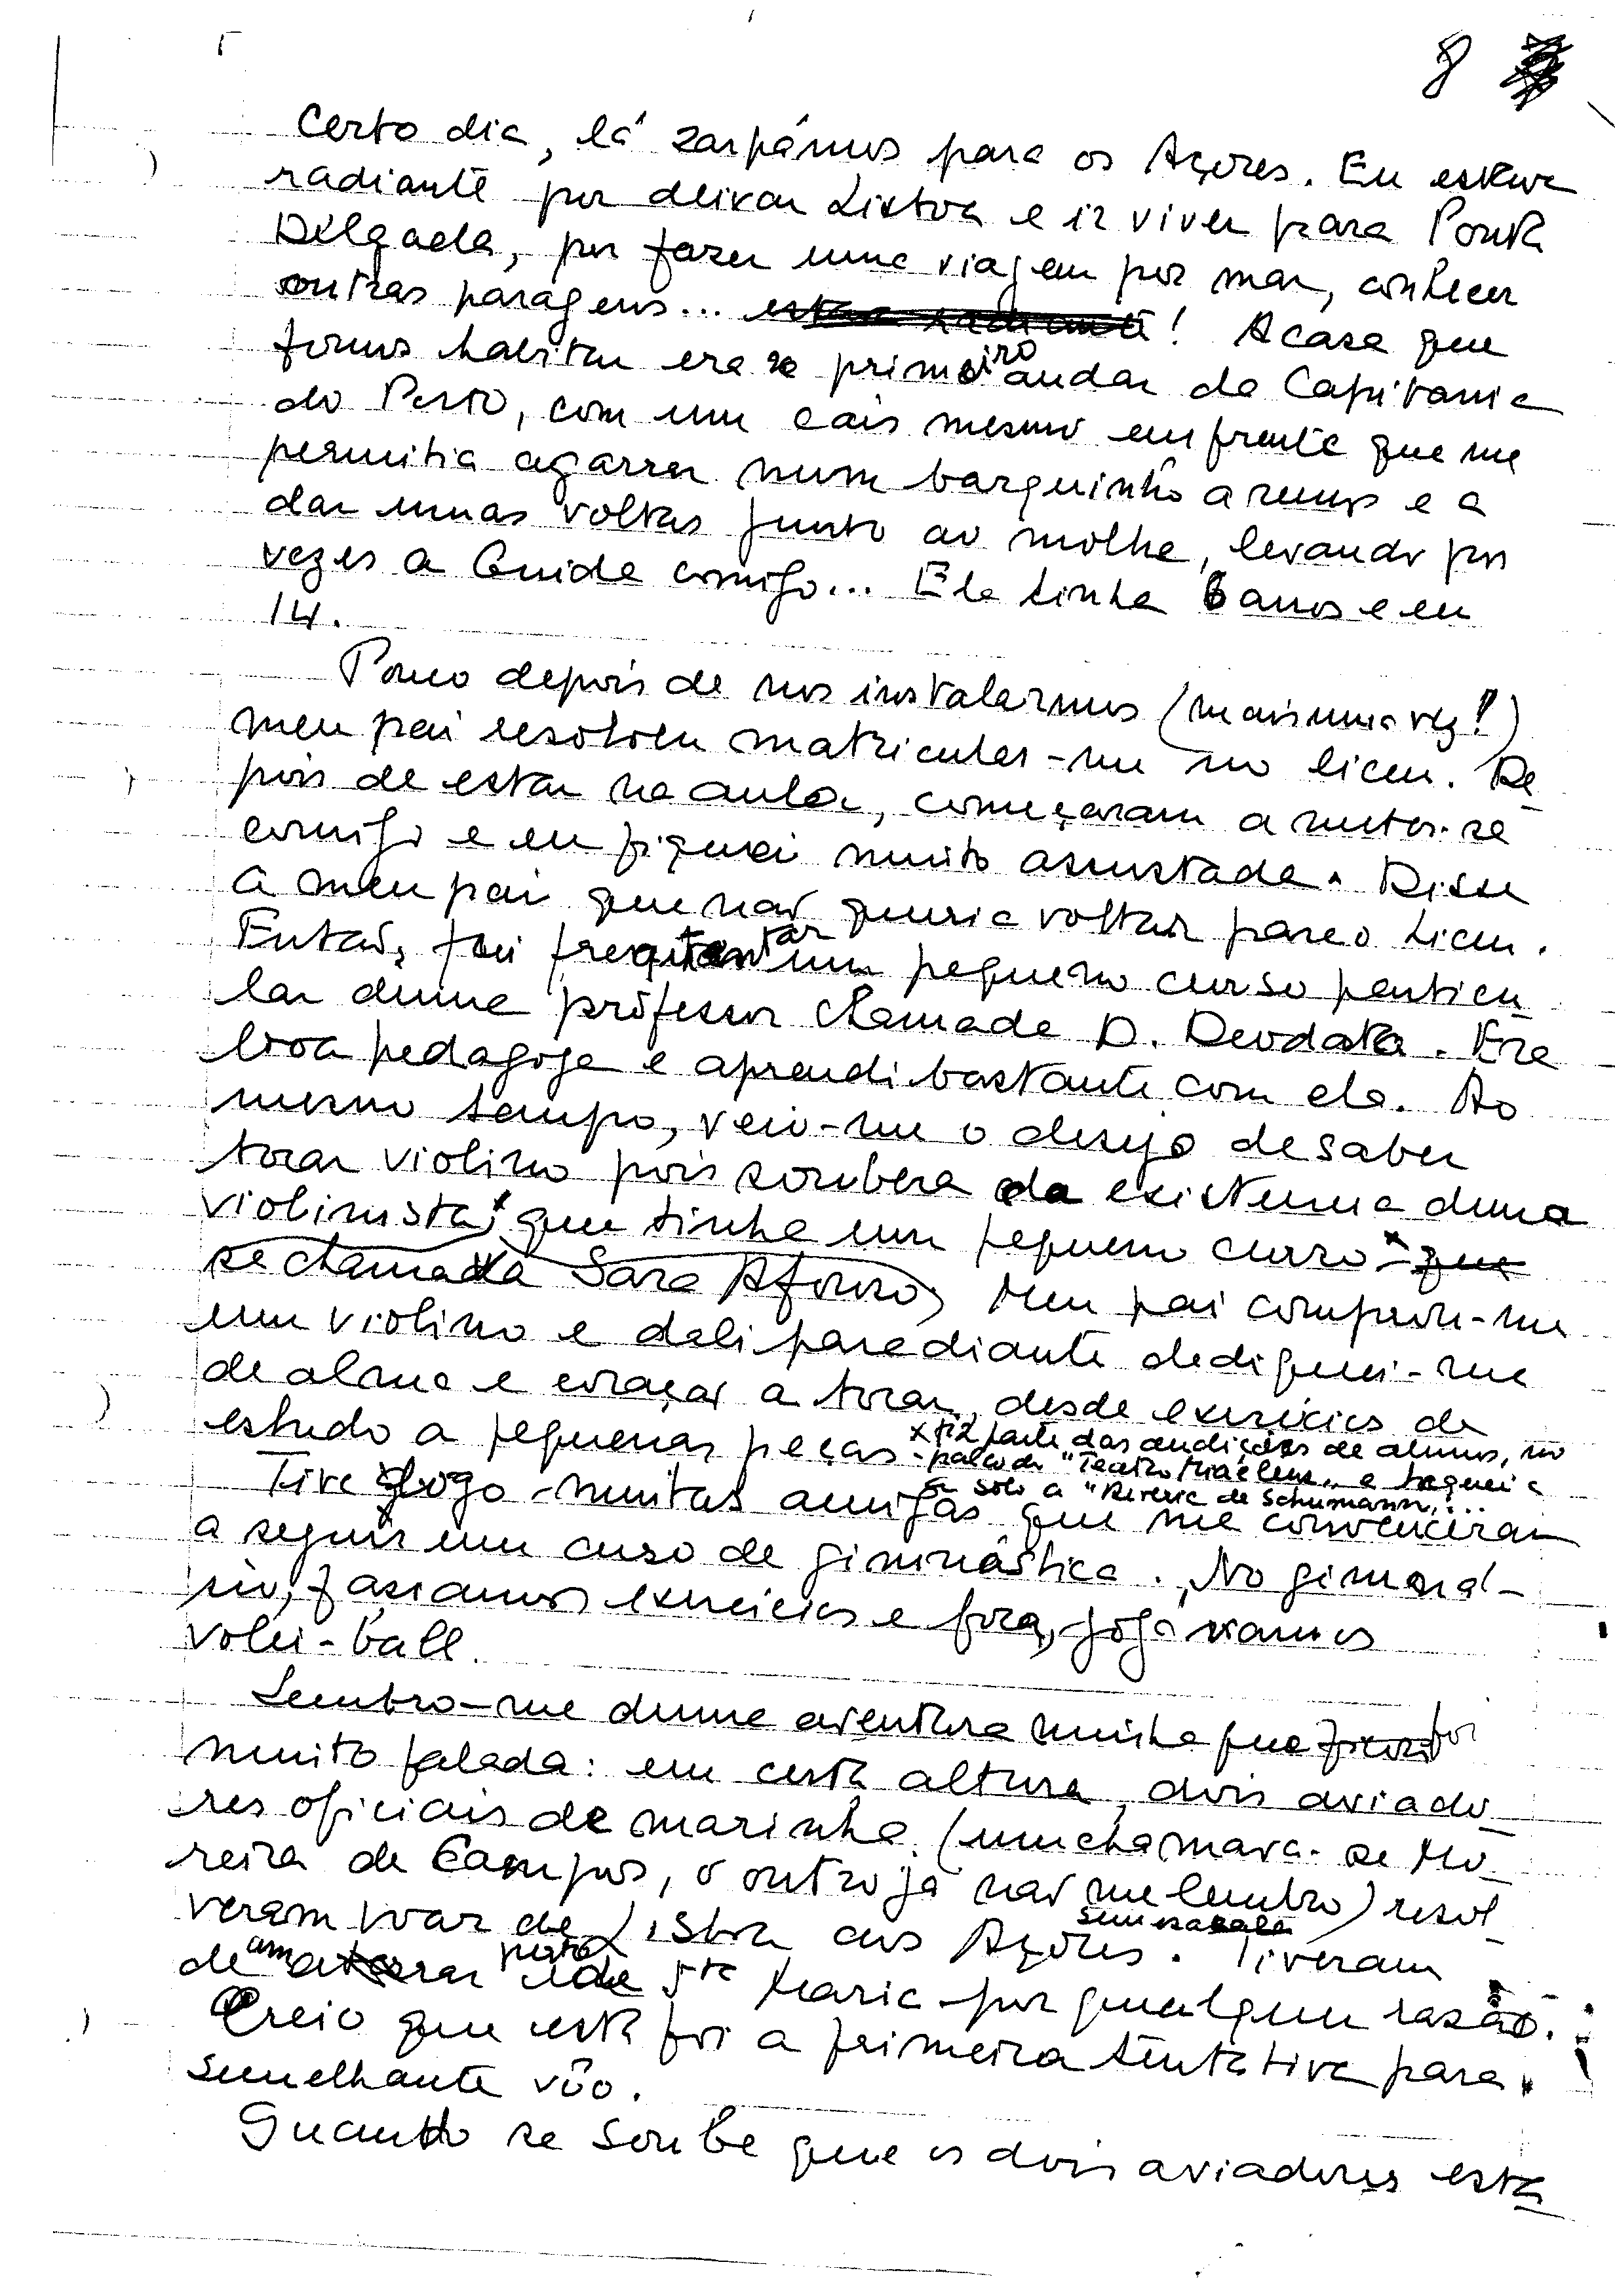 8
Certo dia, lá zarpámos para os Açores. Eu estava
radiante por deixar Lisboa e ir viver para Ponta
Delgada, por fazer uma viagem por mar, conhecer
outras paragens... estava radiante! A casa que
fomos habitar era o primeiro andar da Capitania
do Porto, com um cais mesmo em frente que me
permitia agarrar num barquinho a remos e a
dar umas voltas junto ao molhe, levando por
vezes a Guida comigo... Ela tinha 6 anos e eu
14.
Pouco depois de nos instalarmos (mais uma vez!)
meu pai resolveu matricular-me no liceu. De
pois de estar na aula, começaram a meter-se
comigo e eu fiquei muito assustada. Disse
a meu pai que não queria voltar para o Liceu.
Então, fui frequentar um pequeno curso particu
lar duma professor chamada D. Deodata. Era
boa pedagoga e aprendi bastante com ela. Ao
mesmo tempo, veio-me o desejo de saber
tocar violino pois soubera da existencia duma
violinista, que tinha um pequeno curso - que
se chamava Sara Afonso, Meu pai comprou-me
um violino e dali para diante dediquei-me
de alma e coração a tocar, desde exercicios de
estudo a pequenas peças x fiz parte das audições de alunos, no
palco do "Teatro Micaelense" e toquei a
solo a "Reverie de Schumann"...
Tive logo muitas amigas que me convenceram
a seguir um curso de gimnástica. No gimná-
sio, faziamos exercicios e fora, jogávamos
volei-ball.
Lembro-me duma aventura minha que foi
muito falada: em certa altura, dois aviado
res oficiais de marinha (um chamava-se Mo
reira de Campos, o outro já não me lembro) resol
veram voar de Lisboa aos Açores. Tiveram
sem escala
de amarar perto de Sta Maria por qualquer razão.
Creio que esta foi a primeira tentativa para
semelhante vôo.
Quando se soube que os dois aviadores esta